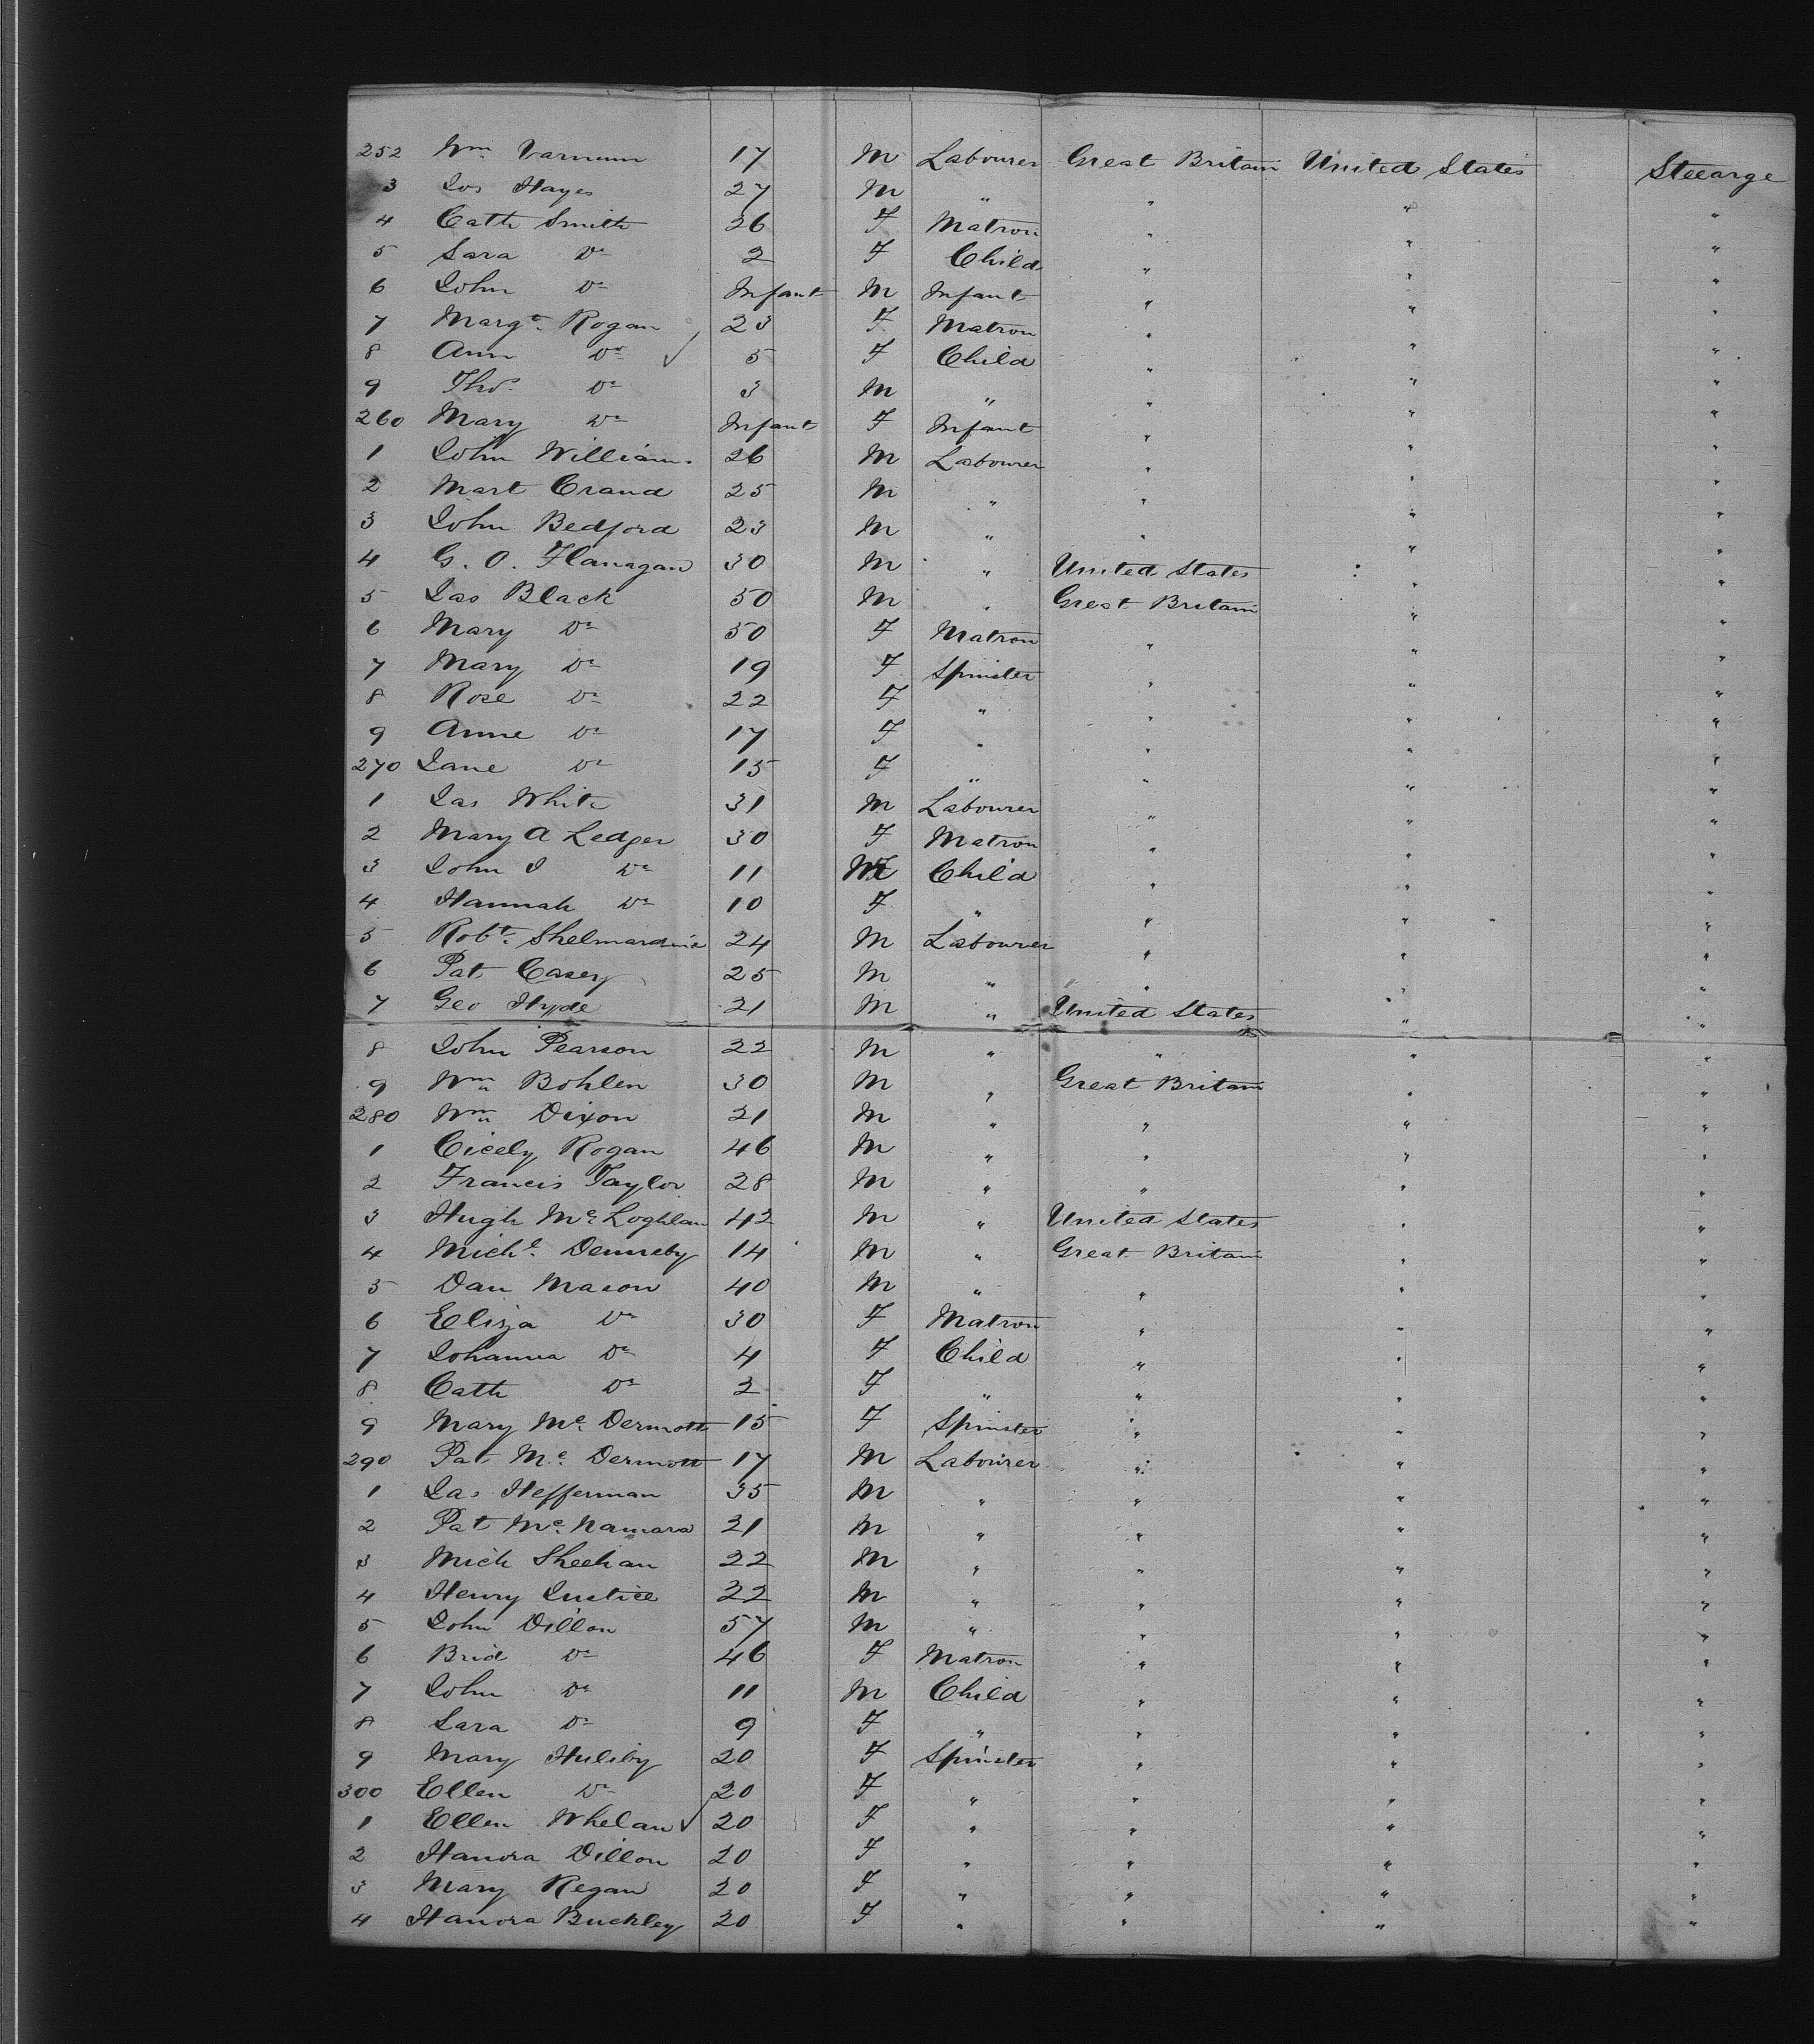 252 Wm Varnum 17 M Labourer Great Britain United States Steearge
3 Jos Hayes 27 M " " " "
4 Cath Smith 26 F Matron " " "
5 Sara Do 2 F Child " " "
6 John Do Infant M Infant " " "
7 Margt. Rogan 23 F Matron " " "
8 Ann Do 5 F Child " " "
9 Thos. Do 3 M " " " "
260 Mary Do Infant F Infant " " "
1 John Williams 26 M Labourer " " "
2 Mart Crand 25 M " " " "
3 John Bedford 23 M " " " "
4 G. O. Flanagan 30 M " United States " "
5 Jas Black 50 M " Great Britain " "
6 Mary Do 50 F Matron " " "
7 Mary Do 19 F Spinster " " "
8 Rose Do 22 F " " " "
9 Anne Do 17 F " " " "
270 Jane Do 15 F " " " "
1 Jas White 31 M Labourer " " "
2 Mary A Ledger 30 F Matron " " "
3 John J Do 11 M Child " " "
4 Hannah Do 10 F " " " "
5 Robt. Shelmardine 24 M Labourer " " "
6 Pat Casey 25 M " " " "
7 Geo Hyde 21 M " United States " "
8 John Pearson 22 M " " " "
9 Wm Bohlen 30 M " Great Britain " "
280 Wm Dixon 21 M " " " "
1 Cicely Rogan 46 M " " " "
2 Francis Taylor 28 M " " " "
3 Hugh Mc Loghlan 42 M " United States " "
4 Michl. 14 M " Great Britain " "
5 Dan Mason 40 M " " " "
6 Eliza Do 30 F Matron " " "
7 Johanna Do 4 F Child " " "
8 Cath Do 2 F " " " "
9 Mary Mc Dermott 15 F Spinster " " "
290 Pat Mc Dermott 17 M Labourer " " "
1 Jas Hefferman 35 M " " " "
2 Pat Mc Namara 21 M " " " "
3 Mich Sheehan 22 M " " " "
4 Henry Justice 22 M " " " "
5 John Dillon 57 M " " " "
6 Brid Do 46 F Matron " " "
7 John Do 11 M Child " " "
8 Sara Do 9 F " " " "
9 Mary Huleby 20 F Spinster " " "
300 Ellen Do 20 F " " " "
1 Ellen Whelan 20 F " " " "
2 Hanora Dillon 20 F " " " "
3 Mary Regan 20 F " " " "
4 Hanora Buckley 20 F " " " "